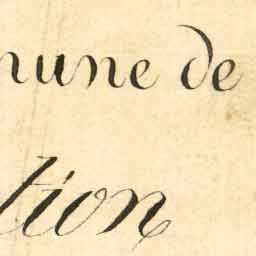 mune de
tion